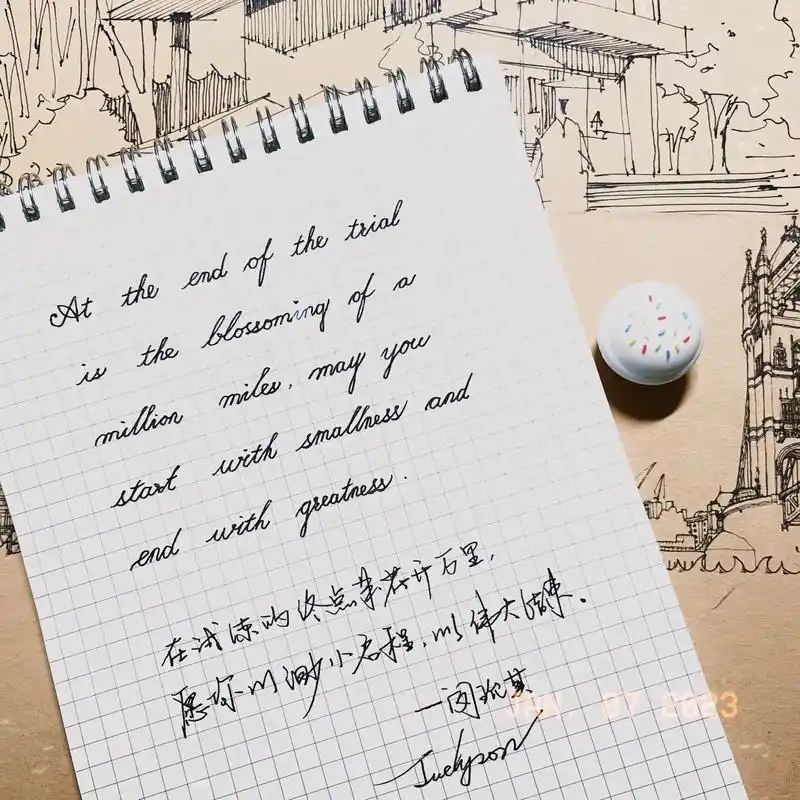 At the end of the trial
is the blossoming of a
million miles, may you
start with smallness and
end with greatness.
在试炼的终点荣花开万里,
愿你以渺小启程,以伟大结束。
JAN. 07 2023